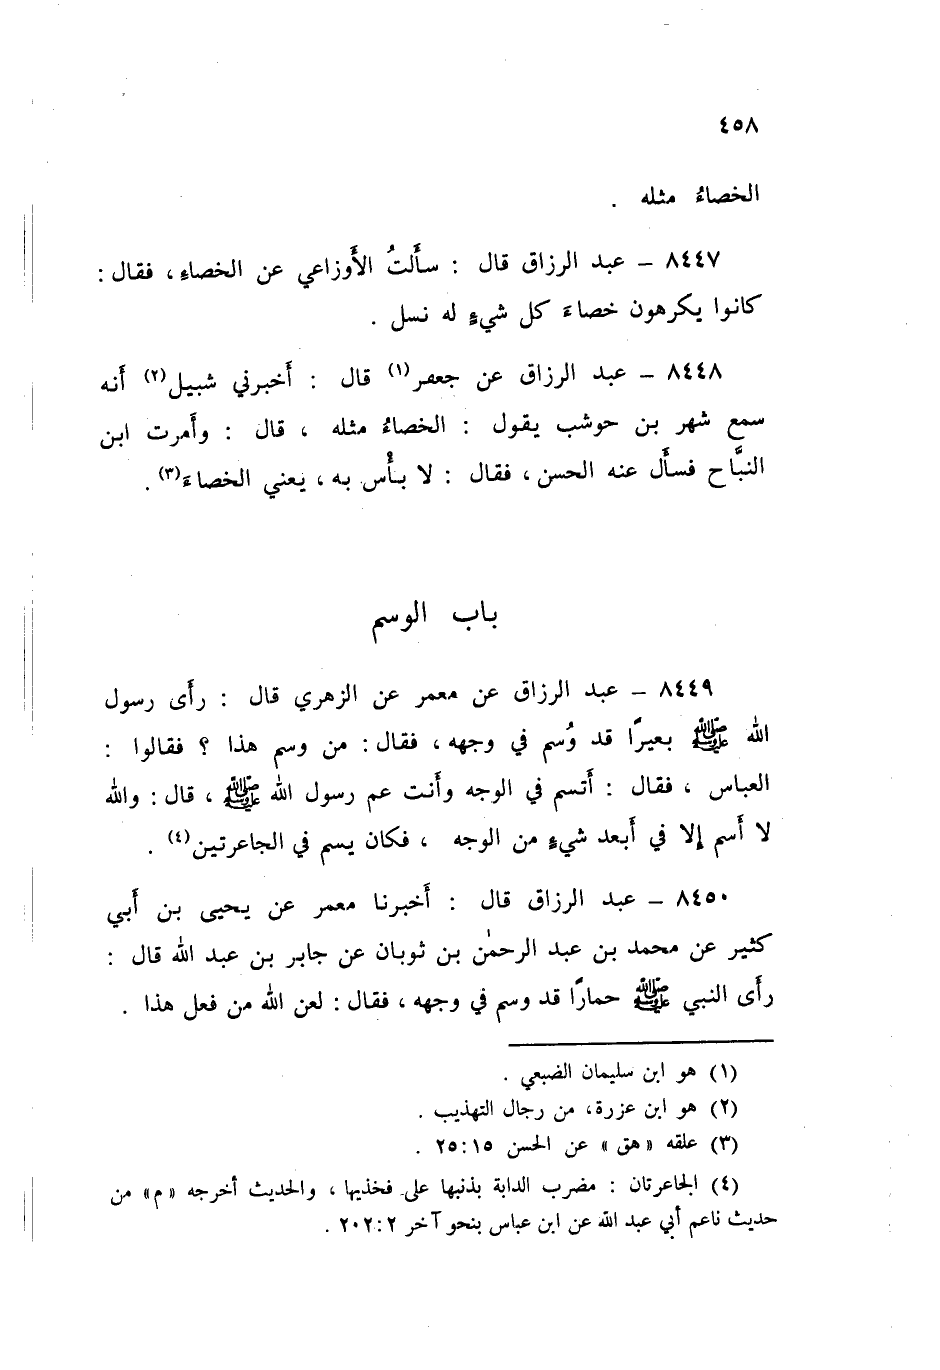 ٤٥٨
الخصاءُ مثله .
٨٤٤٧ – عبد الرزاق قال : سأَلتُ الأَوزاعي عن الخصاءِ ، فقال :
كانوا يكرهون خصاءَ كل شيءٍ له نسل .
٨٤٤٨ – عبد الرزاق عن جعفر(١) قال : أَخبرني شبيل(٢) أَنه
سمع شهر بن حوشب يقول : الخصاءُ مثله ، قال : وأَمرت ابن
النبَّاح فسأَل عنه الحسن ، فقال : لا بأْس به ، يعني الخصاءَ(٣) .
باب الوسم
٨٤٤٩ – عبد الرزاق عن معمر عن الزهري قال : رأَى رسول
الله ﷺ بعيرًا قد وُسم في وجهه ، فقال : من وسم هذا ؟ فقالوا :
العباس ، فقال : أَتسم في الوجه وأَنت عم رسول الله ﷺ ، قال : والله
لا أَسم إلا في أَبعد شيءٍ من الوجه ، فكان يسم في الجاعرتين(٤) .
٨٤٥٠ – عبد الرزاق قال : أَخبرنا معمر عن يحيى بن أَبي
كثير عن محمد بن عبد الرحمٰن بن ثوبان عن جابر بن عبد الله قال :
رأَى النبي ﷺ حمارًا قد وسم في وجهه ، فقال : لعن الله من فعل هذا .
(١) هو ابن سليمان الضبعي .
(٢) هو ابن عزرة، من رجال التهذيب .
(٣) علقه «هق» عن الحسن ١٥ : ٢٥ .
(٤) الجاعرتان : مضرب الدابة بذنبها على فخذيها ، والحديث أخرجه «م» من
حديث ناعم أبي عبد الله عن ابن عباس بنحو آخر ٢ : ٢٠٢ .